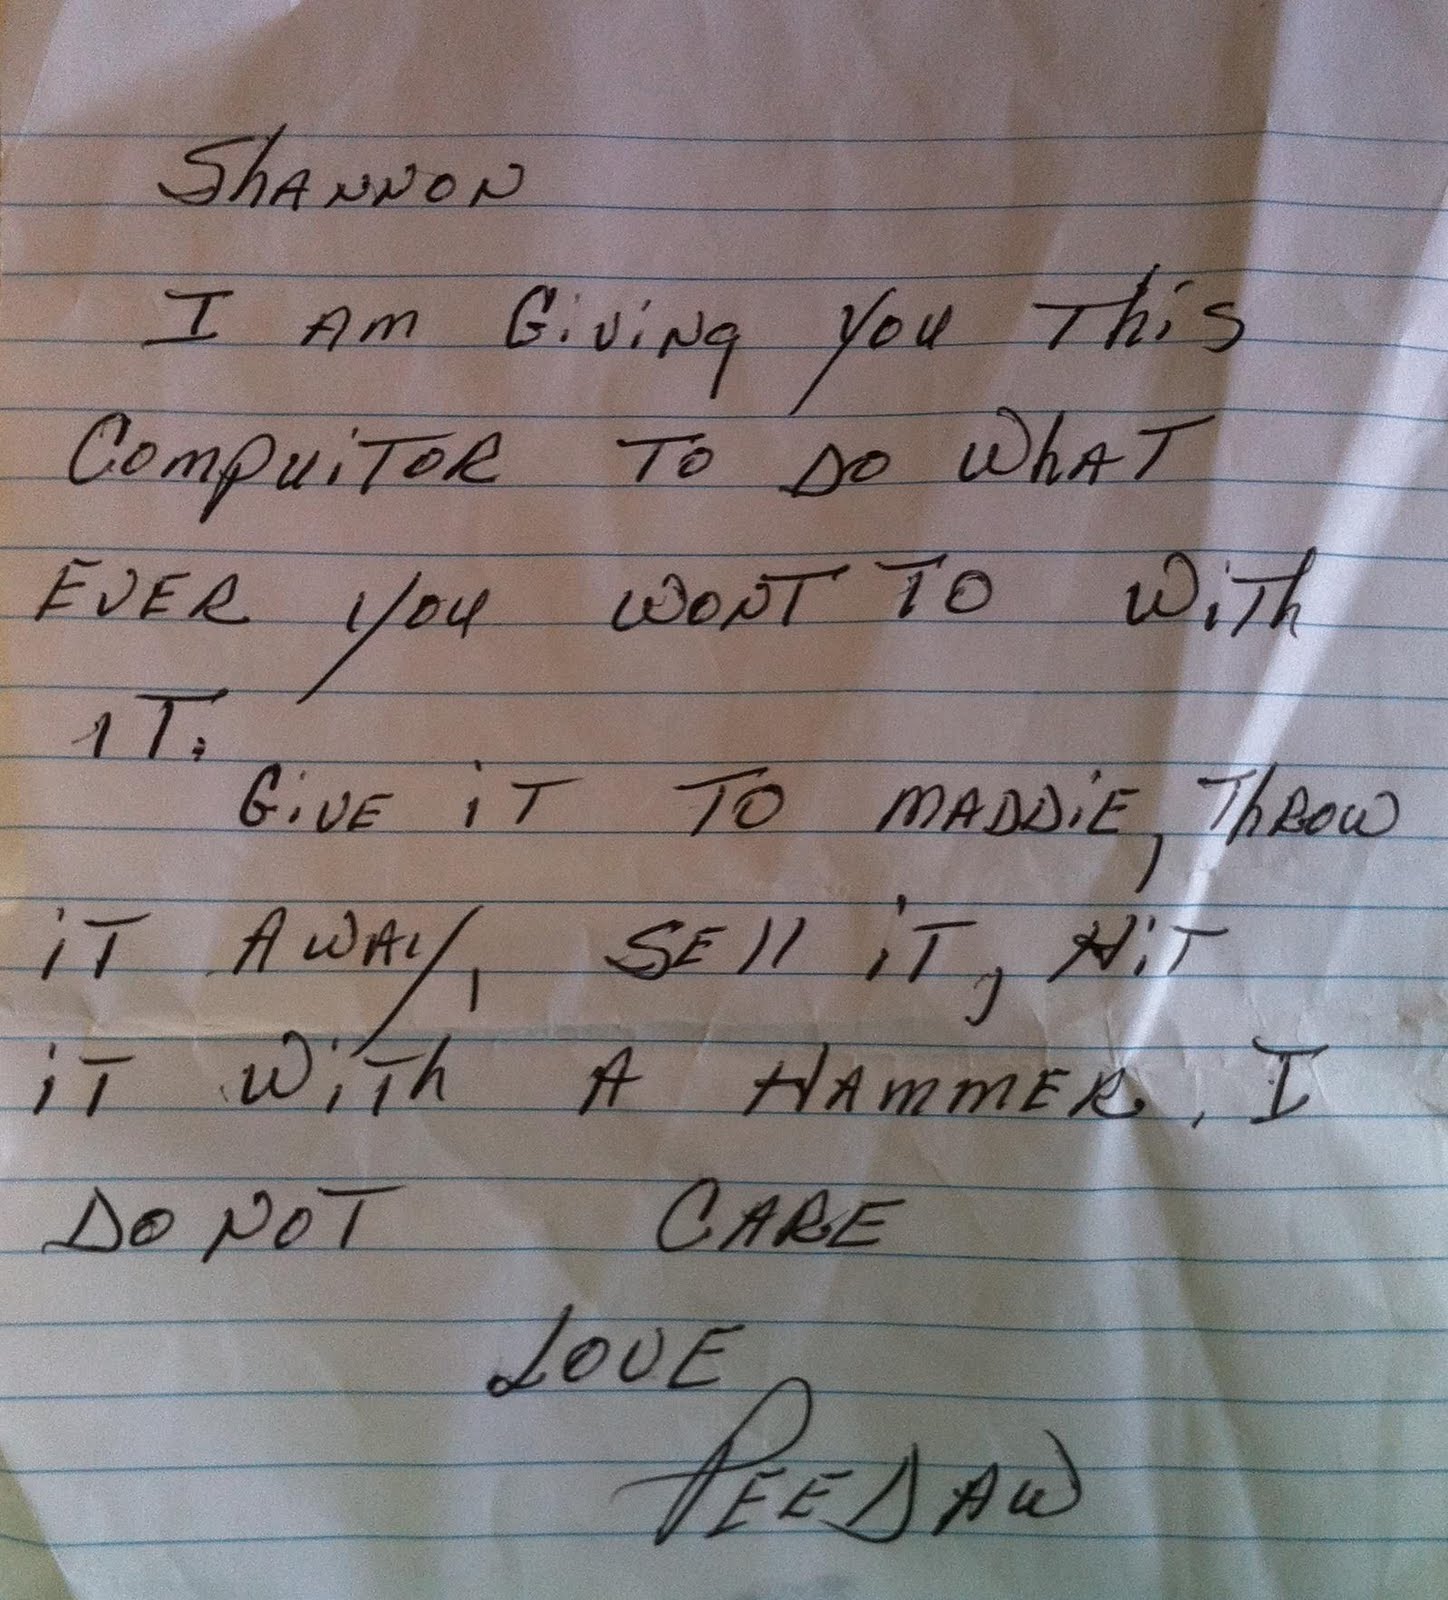 Shannon
I am Giving you This
Compuitor To Do What
Ever you wont To With
iT.
Give iT To Maddie, Throw
iT Away, Sell iT, Hit
iT With A Hammer, I
Do Not Care
Love
PeeDaw